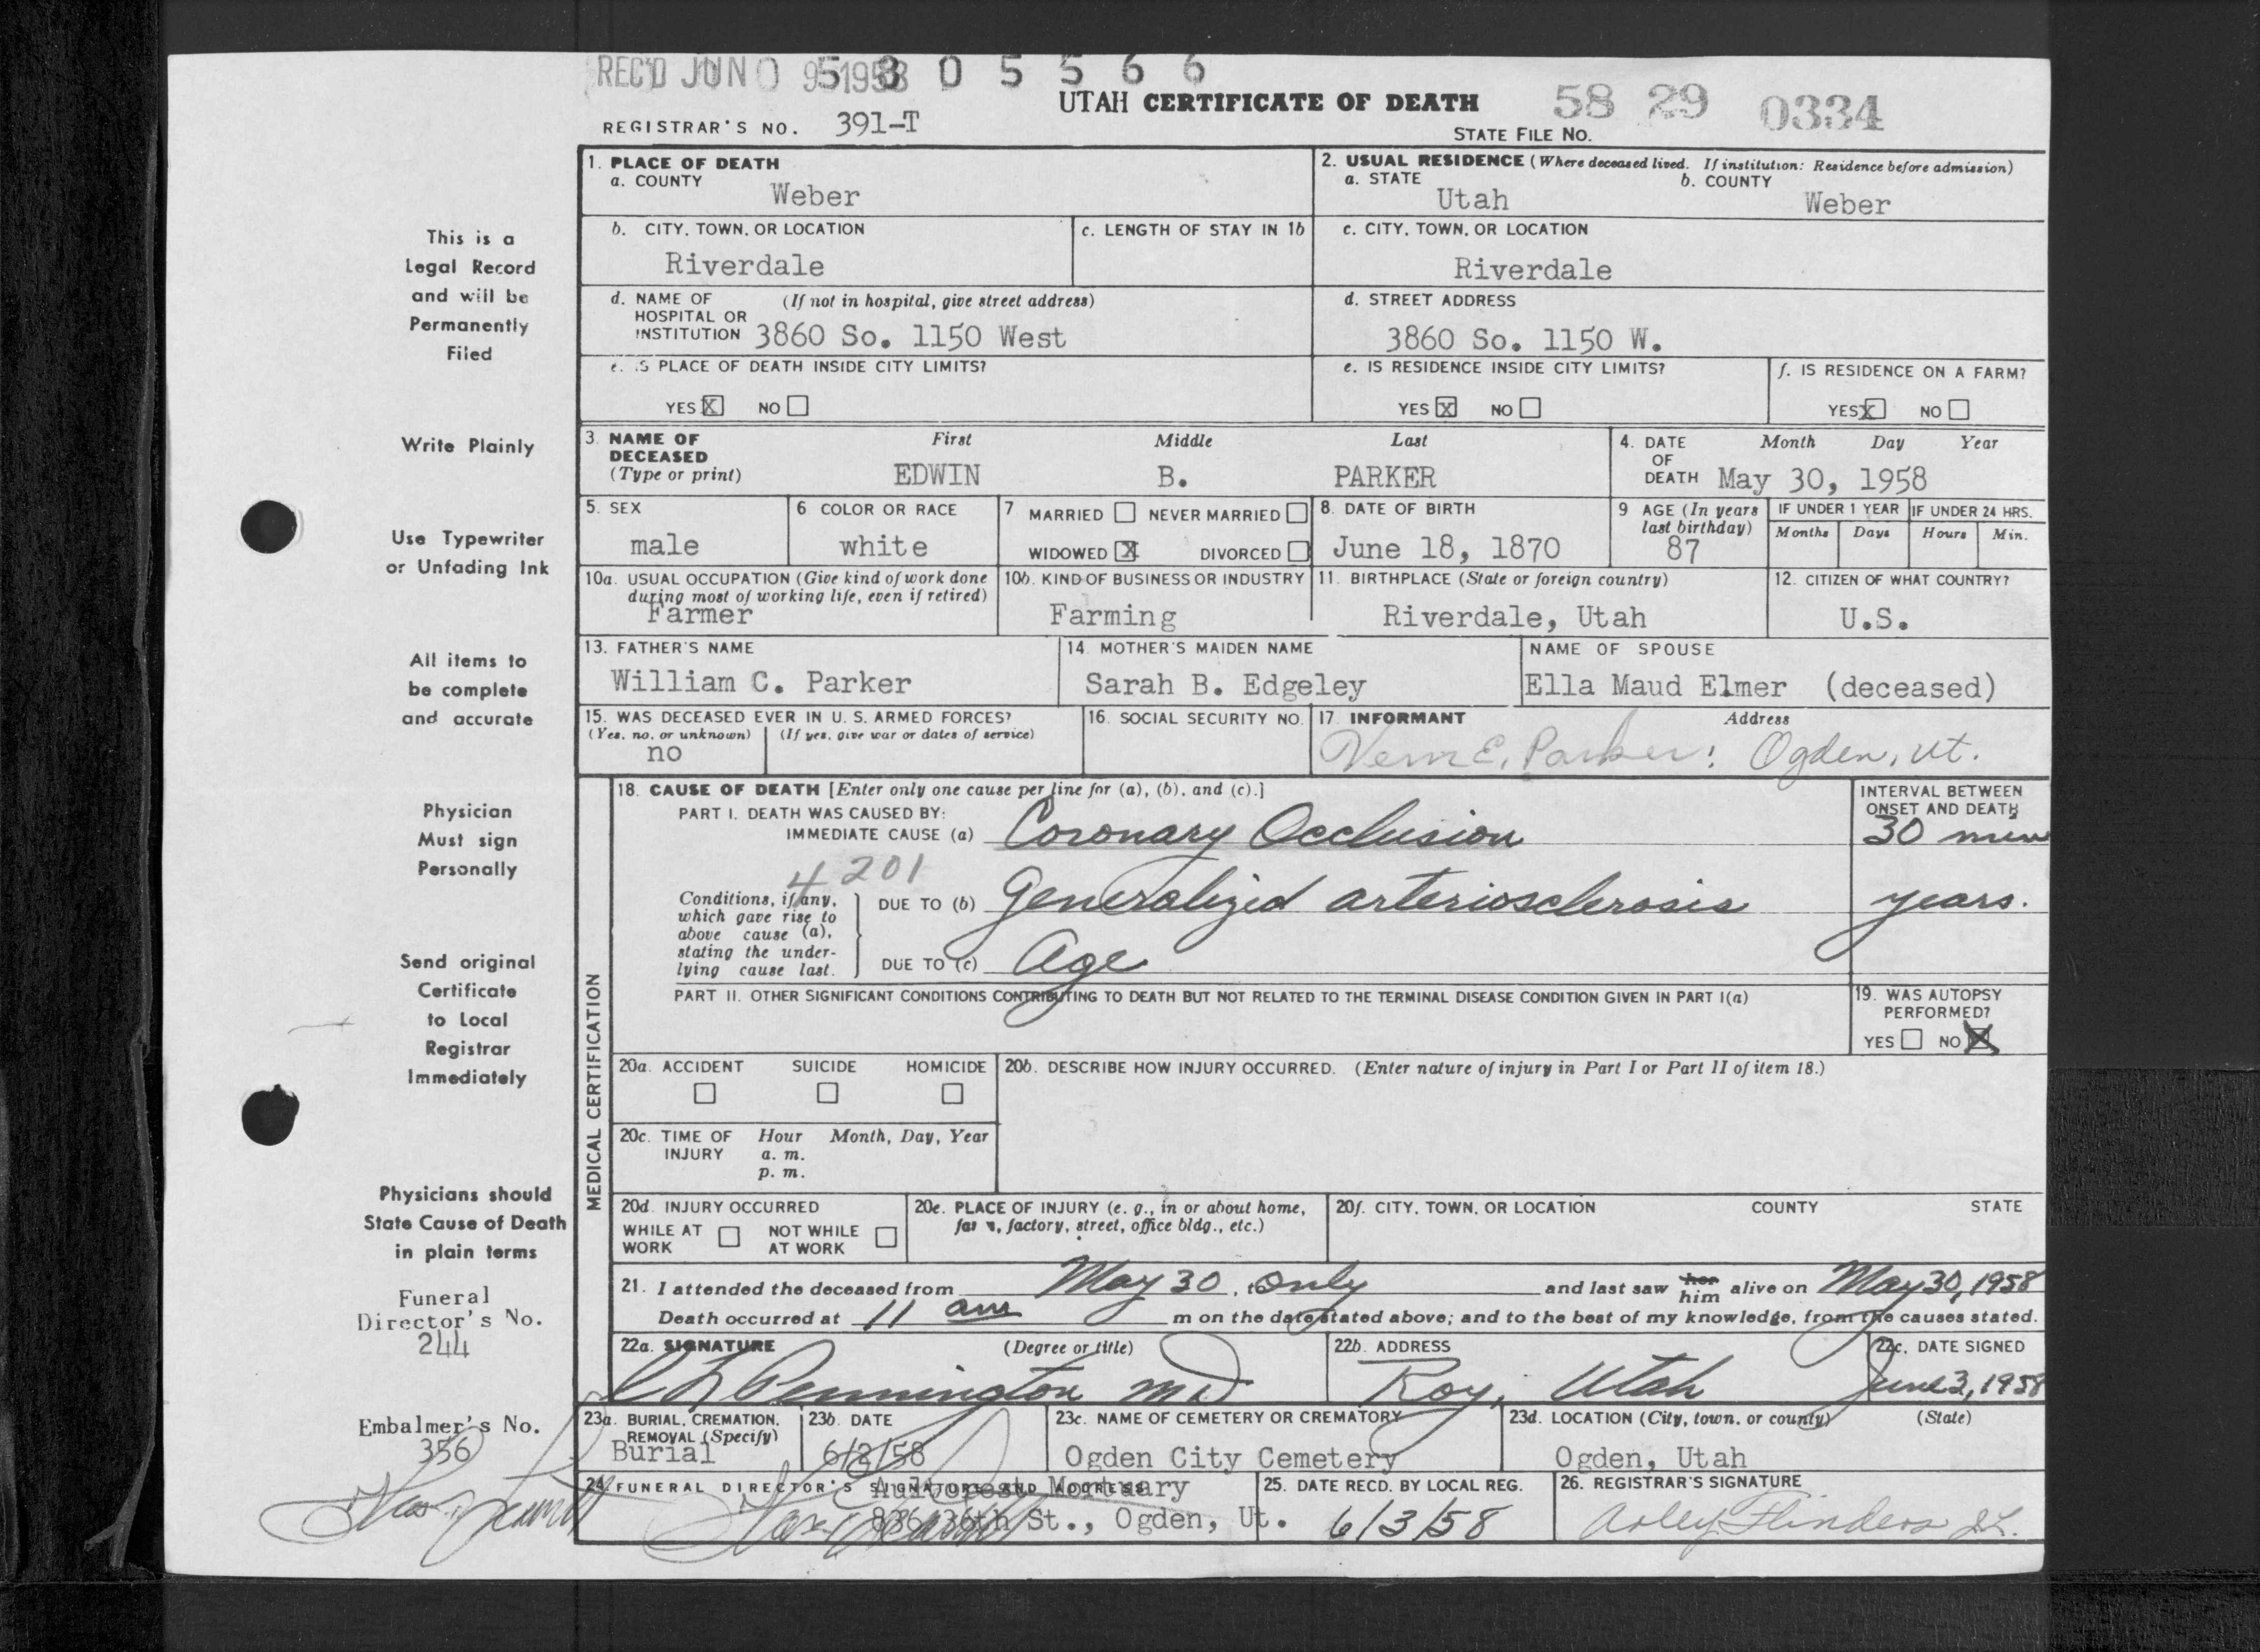 REC'D JUN 0 9 1958 305566
UTAH CERTIFICATE OF DEATH
58 29 0334
REGISTRAR'S NO. 391-T
STATE FILE NO.
This is a
Legal Record
and will be
Permanently
Filed
Write Plainly
Use Typewriter
or Unfading Ink
All items to
be complete
and accurate
Physician
Must sign
Personally
Send original
Certificate
to Local
Registrar
Immediately
Physicians should
State Cause of Death
in plain terms
Funeral
Director's No.
244
Embalmer's No.
356
1. PLACE OF DEATH
a. COUNTY
Weber
2. USUAL RESIDENCE (Where deceased lived. If institution: Residence before admission)
a. STATE b. COUNTY
Utah Weber
b. CITY, TOWN, OR LOCATION
Riverdale
c. LENGTH OF STAY IN 1b
c. CITY, TOWN, OR LOCATION
Riverdale
d. NAME OF (If not in hospital, give street address)
HOSPITAL OR
INSTITUTION 3860 So. 1150 West
d. STREET ADDRESS
3860 So. 1150 W.
e. IS PLACE OF DEATH INSIDE CITY LIMITS?
YES X NO
e. IS RESIDENCE INSIDE CITY LIMITS?
YES X NO
f. IS RESIDENCE ON A FARM?
YES X NO
3. NAME OF First Middle Last
DECEASED
(Type or print) EDWIN B. PARKER
4. DATE Month Day Year
OF
DEATH May 30, 1958
5. SEX
male
6 COLOR OR RACE
white
7 MARRIED NEVER MARRIED
WIDOWED X DIVORCED
8. DATE OF BIRTH
June 18, 1870
9 AGE (In years
last birthday)
87
IF UNDER 1 YEAR IF UNDER 24 HRS.
Months Days Hours Min.
10a. USUAL OCCUPATION (Give kind of work done
during most of working life, even if retired)
Farmer
10b. KIND OF BUSINESS OR INDUSTRY
Farming
11. BIRTHPLACE (State or foreign country)
Riverdale, Utah
12. CITIZEN OF WHAT COUNTRY?
U.S.
13. FATHER'S NAME
William C. Parker
14. MOTHER'S MAIDEN NAME
Sarah B. Edgeley
NAME OF SPOUSE
Ella Maud Elmer (deceased)
15. WAS DECEASED EVER IN U. S. ARMED FORCES?
(Yes, no, or unknown) (If yes, give war or dates of service)
no
16. SOCIAL SECURITY NO.
17. INFORMANT Address
Vern E. Parker: Ogden, Ut.
MEDICAL CERTIFICATION
18. CAUSE OF DEATH [Enter only one cause per line for (a), (b), and (c).]
INTERVAL BETWEEN
ONSET AND DEATH
PART I. DEATH WAS CAUSED BY:
IMMEDIATE CAUSE (a) Coronary Occlusion 30 min
4201
Conditions, if any,
which gave rise to
above cause (a),
stating the under-
lying cause last.
DUE TO (b) Generalized arteriosclerosis years.
DUE TO (c) Age
PART II. OTHER SIGNIFICANT CONDITIONS CONTRIBUTING TO DEATH BUT NOT RELATED TO THE TERMINAL DISEASE CONDITION GIVEN IN PART I(a)
19. WAS AUTOPSY
PERFORMED?
YES NO X
20a. ACCIDENT SUICIDE HOMICIDE
20b. DESCRIBE HOW INJURY OCCURRED. (Enter nature of injury in Part I or Part II of item 18.)
20c. TIME OF Hour Month, Day, Year
INJURY a. m.
p. m.
20d. INJURY OCCURRED
WHILE AT NOT WHILE
WORK AT WORK
20e. PLACE OF INJURY (e. g., in or about home,
farm, factory, street, office bldg., etc.)
20f. CITY, TOWN, OR LOCATION COUNTY STATE
21. I attended the deceased from May 30, only and last saw her him alive on May 30, 1958
Death occurred at 11 am m on the date stated above; and to the best of my knowledge, from the causes stated.
22a. SIGNATURE (Degree or title)
Pennington MD
22b. ADDRESS
Roy, Utah
22c. DATE SIGNED
June 3, 1958
23a. BURIAL, CREMATION,
REMOVAL (Specify)
Burial
23b. DATE
6/2/58
23c. NAME OF CEMETERY OR CREMATORY
Ogden City Cemetery
23d. LOCATION (City, town, or county) (State)
Ogden, Utah
24. FUNERAL DIRECTOR'S SIGNATURE AND ADDRESS
Aultorest Mortuary
836 36th St., Ogden, Ut.
25. DATE RECD. BY LOCAL REG.
6/3/58
26. REGISTRAR'S SIGNATURE
Arley Flinders